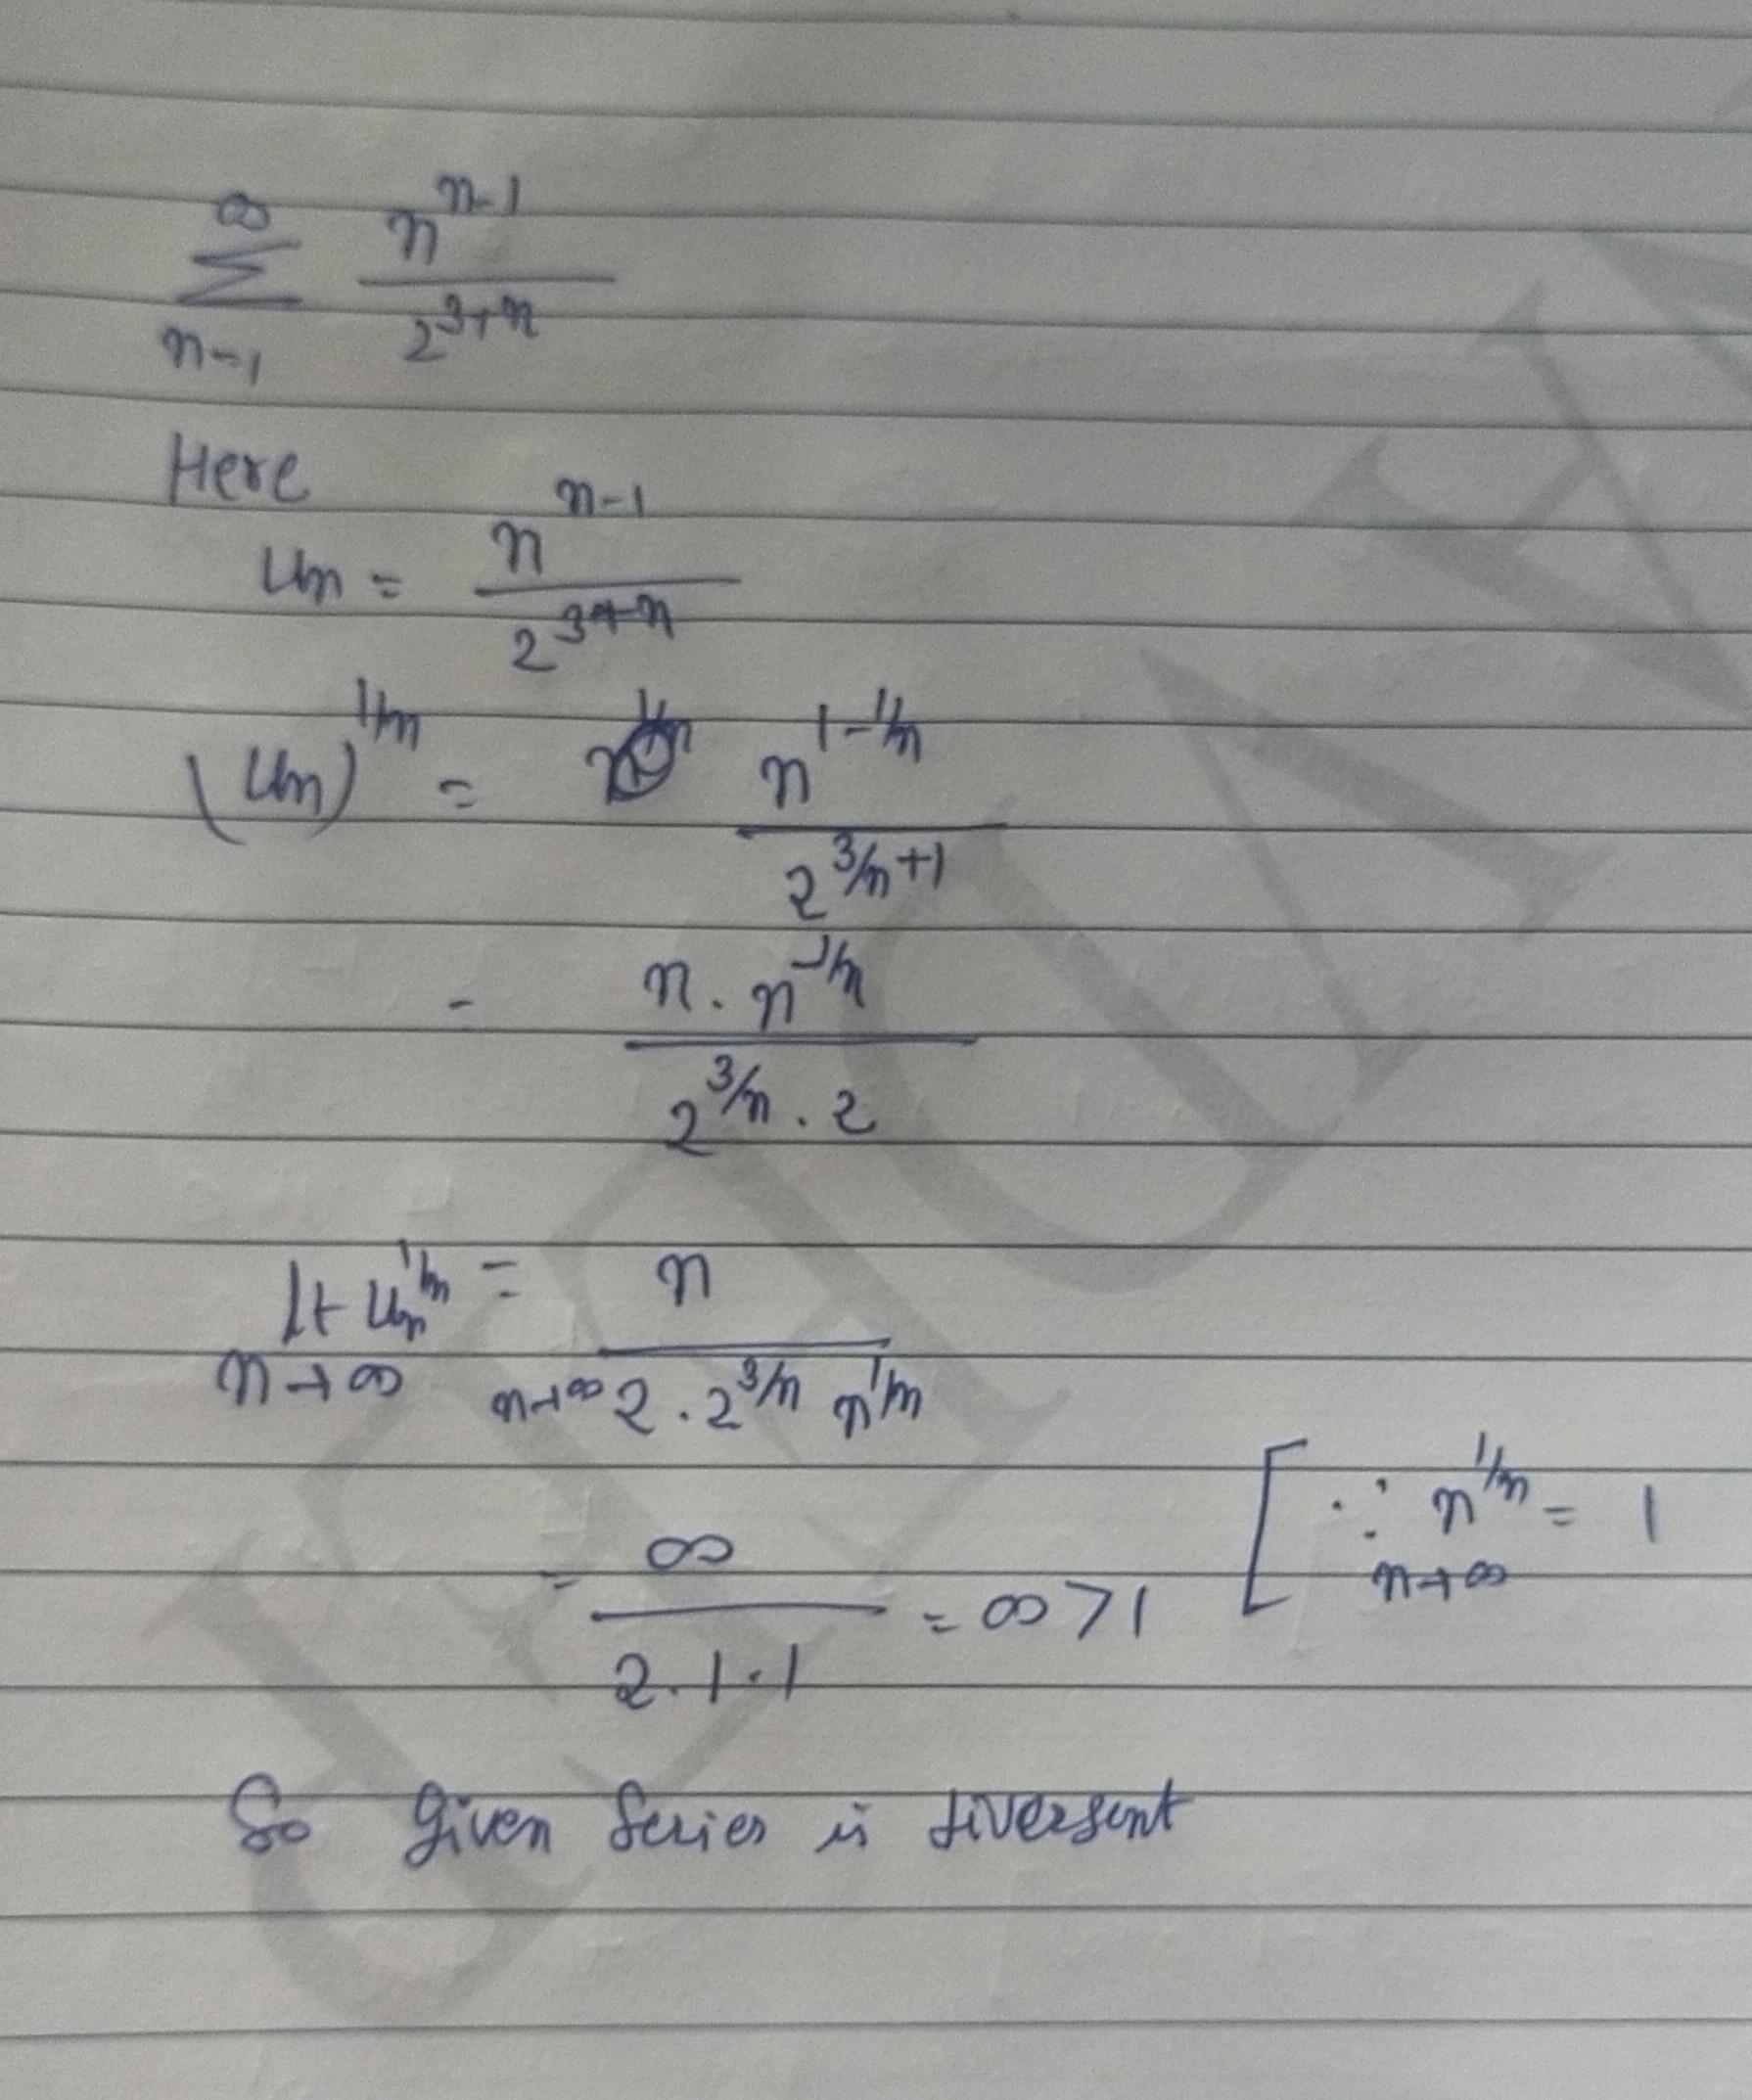 ∞
Σ n^{n-1} / 2^{3+n}
n=1
Here
Un = n^{n-1} / 2^{3+n}
(Un)^{1/n} = n^{1-1/n} / 2^{3/n+1}
= n . n^{-1/n} / 2^{3/n} . 2
lt Un^{1/n} = n / 2 . 2^{3/n} n^{1/n}
n→∞ n→∞
= ∞ / 2.1.1 = ∞ > 1 [ ∵ n^{1/n} = 1
n→∞
So Given Series is divergent